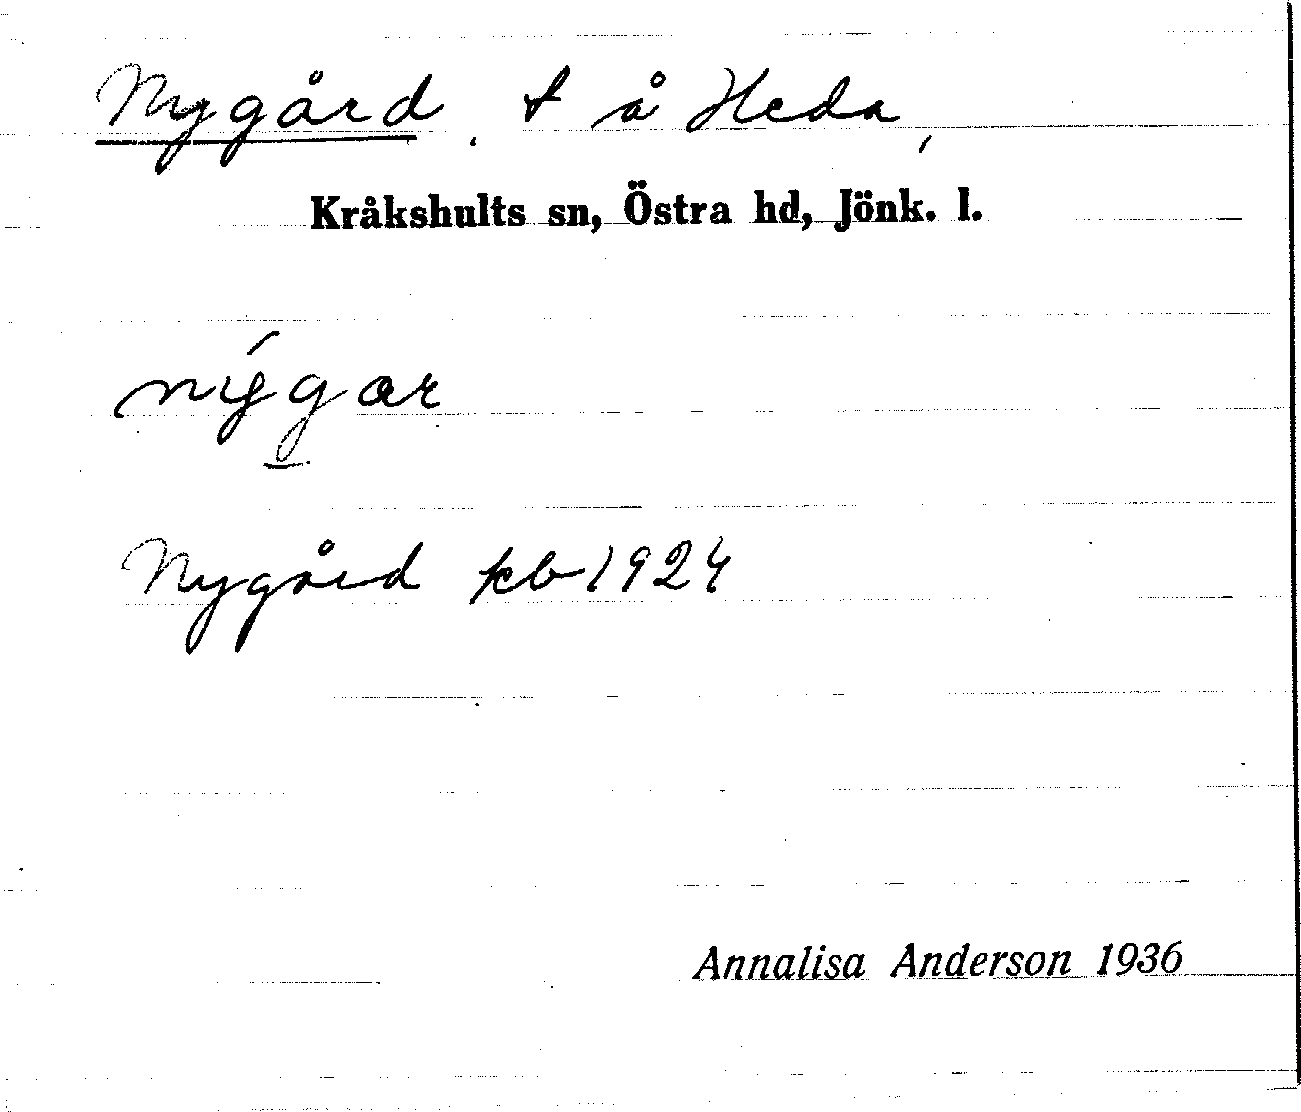 Nygård, t å Heda,
Kråkshults sn, Östra hd, Jönk. l.
nýgar
Nygård kb 1924
Annalisa Anderson 1936